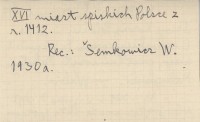 XVI miast spiskich Polsce z
r. 1412.
Rec.: Šemkowicz W.
1930 a.